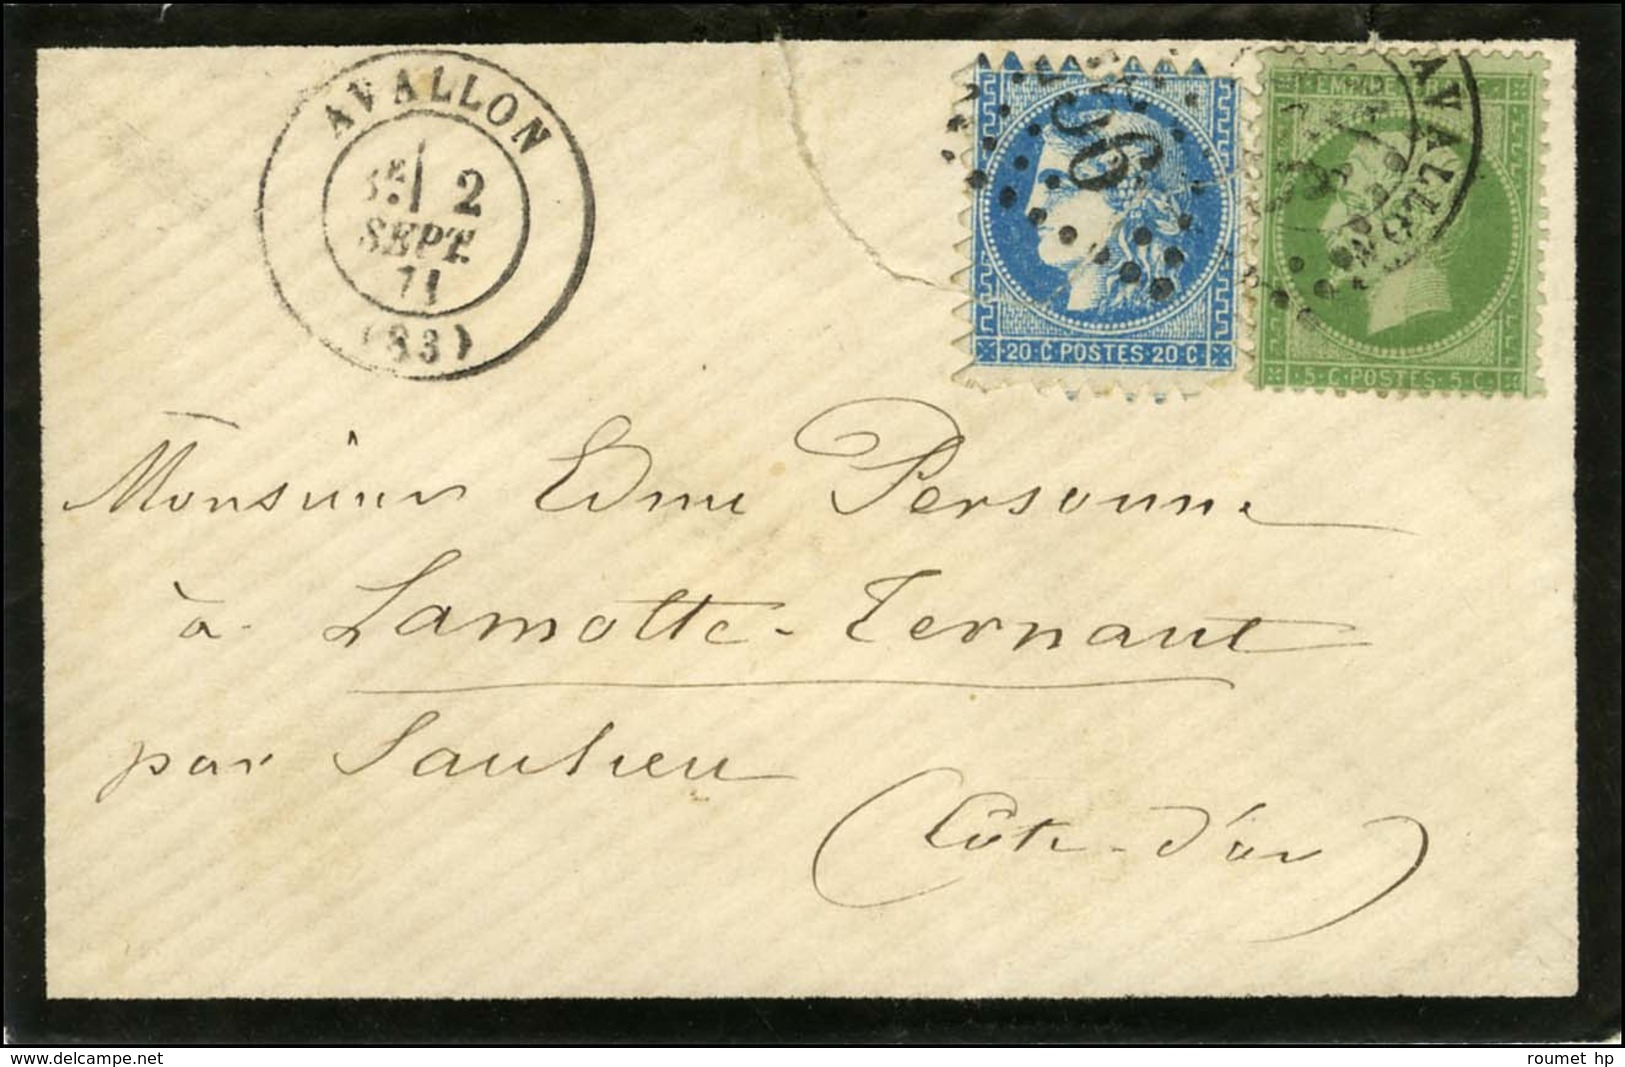 AVALLON
2
SEPT.
71
(83)
20·C POSTES·20·C
5·C·POSTES·5·C
AVALLON
Monsieur Edme Personne
à Lamotte-Ternant
par Saulieu
(Côte-d'or)
www.delcampe.net
roumet hp